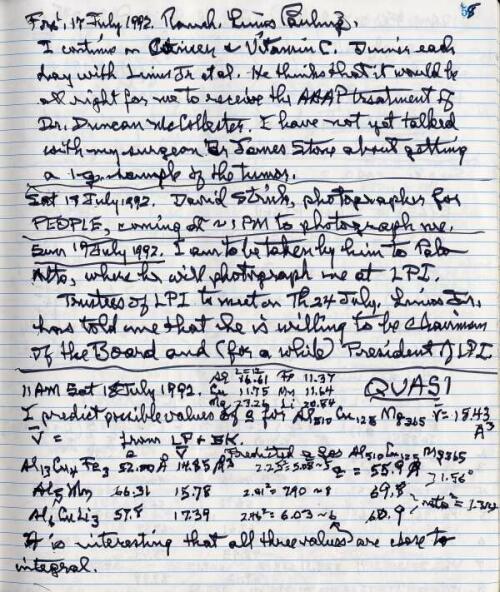 58
Fri. 17 July 1992. Ranch. Linus Pauling.
I continue on & Vitamin C. Dinner each
day with Linus Jr et al. He thinks that it would be
all right for me to receive the treatment of
Dr. Duncan McCollester. I have not yet talked
with my surgeon Dr James Stone about getting
a 1-g sample of the tumor.
Sat 18 July 1992. David Strick, photographer for
PEOPLE, coming at ~1 PM to photograph me.
Sun 19 July 1992. I am to be taken by him to Palo
Alto, where he will photograph me at LPI.
Trustees of LPI to meet on Th 24 July. Linus Jr.
has told me that he is willing to be chairman
of the Board and (for a while) President of LPI.
Al 16.61 Fe 11.37
11 AM Sat 18 July 1992. Cu 11.75 Mn 11.64 QUASI
Mg 23.26 Li 20.84
I predict possible values of a for Al510 Cu125 Mg365 V̄ = 15.43 Å3
V̄ = from LP + SK.
a V̄ Predicted a for Al510 Cu125 Mg365
Al13Cu4Fe3 52.00 Å 14.85 Å3 2.25² = 5.08 ~ 5 a = 55.9 Å
Al5Mn 66.31 15.78 2.81² = 7.90 ~ 8 69.8
Al6CuLi3 57.8 17.39 2.46² = 6.03 ~ 6 60.9
It is interesting that all three values are close to
integral.